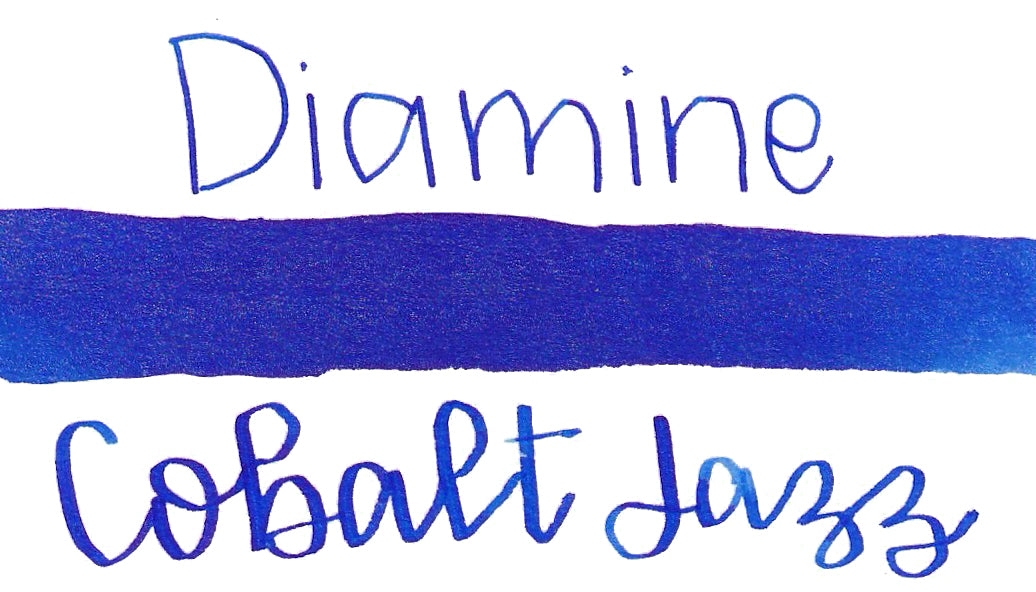 Diamine
Cobalt Jazz